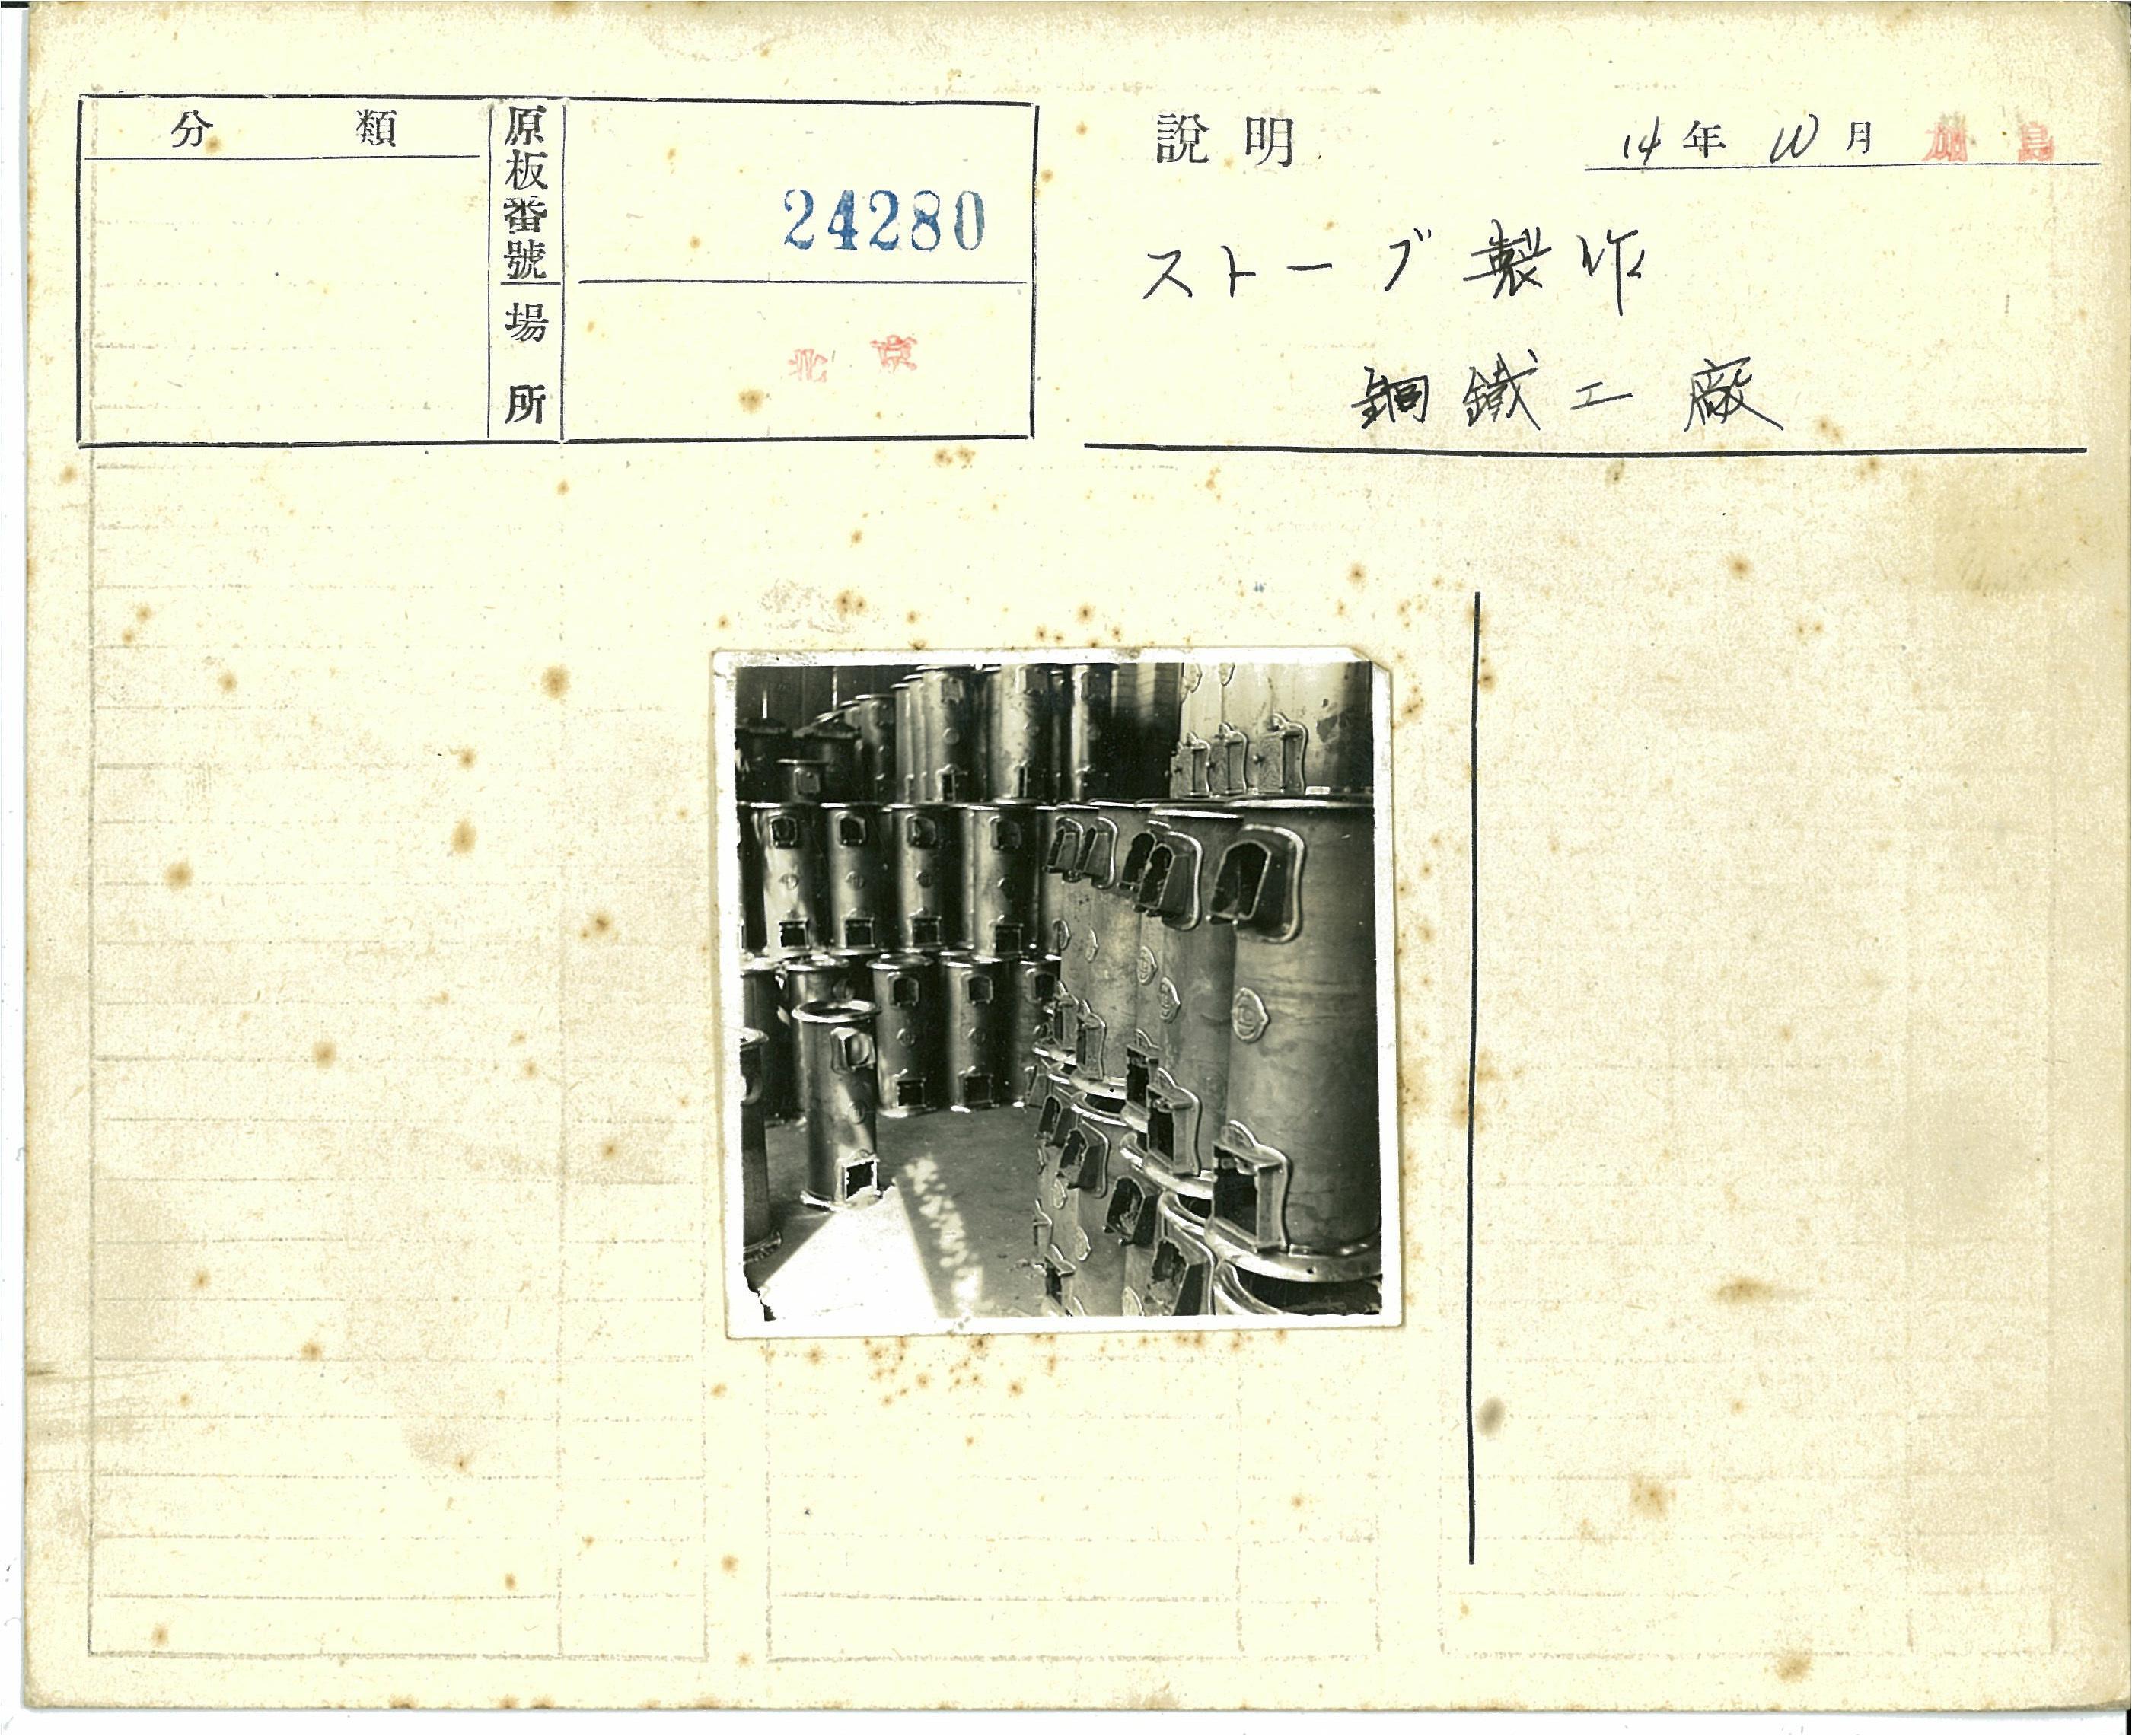 分類
原板番號
24280
場所
北京
說明
14年10月 加島
ストーブ製作
銅鐵工廠